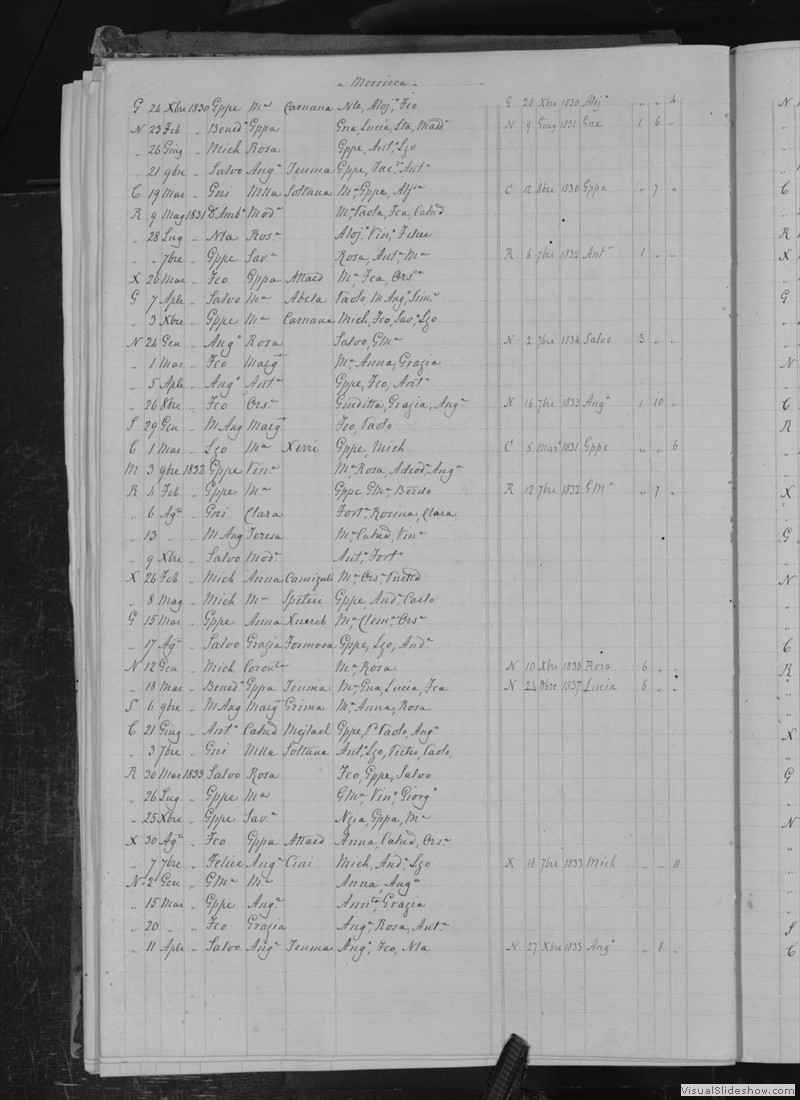 Mercieca
G 24 Xbre 1830 Gppe Mª Caruana Nla, Aloj.º Fco G 28 Xbre 1830 Aloj.º „ „ 4
N 23 Feb „ Bened.º Gppa Gna, Lucia, Sta, Madd.ª N 9 Giug 1831 Gna 1 6 „
„ 26 Giug „ Mich Rosa Gppe, Ant.º Lzo
„ 21 9bre „ Salvo Ang.ª Teuma Gppe, Fac.º Ant.º
C 19 Mar „ Gni Mlla Soltana Mª Gppe, C 12 8bre 1830 Gppa „ 7 „
R 9 Mag 1831 Mod.ª Mª Paola, Fca, Catnd
„ 28 Lug „ Nla Ros.ª Aloj.º Vin.º Felice
„ „ 7bre „ Gppe Sav.ª Rosa, Ant.ª Mª R 6 7bre 1832 Ant.ª 1 „ „
X 26 Mar „ Fco Gppa Attard Mª Fca, Ors.ª
G 7 Aple „ Salvo Mª Abela Paolo, M Ang.º Sim.º
„ 3 Xbre „ Gppe Mª Caruana Mich, Fco, Sav.º Lzo
N 24 Gen „ Ang.º Rosa Salvo, GMª N 2 7bre 1834 Salvo 3 „ „
„ 1 Mar „ Fco Marg.ª Mª Anna, Grazia
„ 5 Aple „ Ang.º Ant.ª Gppe, Fco, Ant.º
„ 26 8bre „ Fco Ors.ª Giuditta, Grazia, Ang.ª N 16 7bre 1833 Ang.ª 1 10 „
S 29 Gen „ M Ang Marg.ª Fco, Paolo
C 1 Mar „ Lzo Mª Xerri Gppe, Mich C 5 Mar.º 1831 Gppe „ „ 6
M 3 9bre 1832 Gppe Vin.ª Mª Rosa, Adeod.ª Ang.ª
R 4 Feb „ Gppe Mª Gppe, GMª R 12 7bre 1832 GMª „ 7 „
„ 6 Ag.º „ Gni Clara Fort.ª Rosina, Clara
„ 13 „ „ M Ang Teresa Mª Catnd, Vin.ª
„ 9 Xbre „ Salvo Mod.ª Ant.º Fort.º
X 26 Feb „ Mich Anna Camizuli Mª Ors.ª
„ 8 Mag „ Mich Mª Spiteri Gppe And.ª Carlo
G 15 Mar „ Gppe Anna Xuereb Mª Clem.ª Ors.ª
„ 17 Ag.º „ Salvo Grazia Formosa Gppe, Lzo, And.ª
N 12 Gen „ Mich Mª Rosa N 10 Xbre 1838 Rosa 6 „ „
„ 18 Mar „ Bened.º Gppa Teuma Mª Gna, Lucia, Fca N 24 8bre 1837 Lucia 6 „ „
S 6 9bre „ M Ang Marg.ª Grima Mª Anna, Rosa
C 21 Giug „ Ant.º Catnd Mejlael Gppe, P Paolo, Ang.º
„ 3 7bre „ Gni Mlla Soltana Ant.º Lzo, Pietro, Paolo
R 30 Mar 1833 Salvo Rosa Fco, Gppe, Salvo
„ 26 Lug „ Gppe Mª GMª Vin.º Giorg.º
„ 25 Xbre „ Gppe Sav.ª Nzia, Gppa, Mª
X 30 Ag.º „ Fco Gppa Attard Anna, Catnd, Ors.ª
„ 7 7bre „ Felice Ang.ª Cini Mich, And.ª Lzo X 18 7bre 1833 Mich „ „ 11
N 2 Gen „ GMª Mª Anna, Ang.ª
„ 15 Mar „ Gppe Ang.ª Grazia
„ 20 „ „ Fco Grazia Ang.ª Rosa, Ant.ª
„ 11 Aple „ Salvo Ang.ª Teuma Ang.º Fco, Nla N 27 Xbre 1833 Ang.º „ 8 „
VisualSlideshow.com